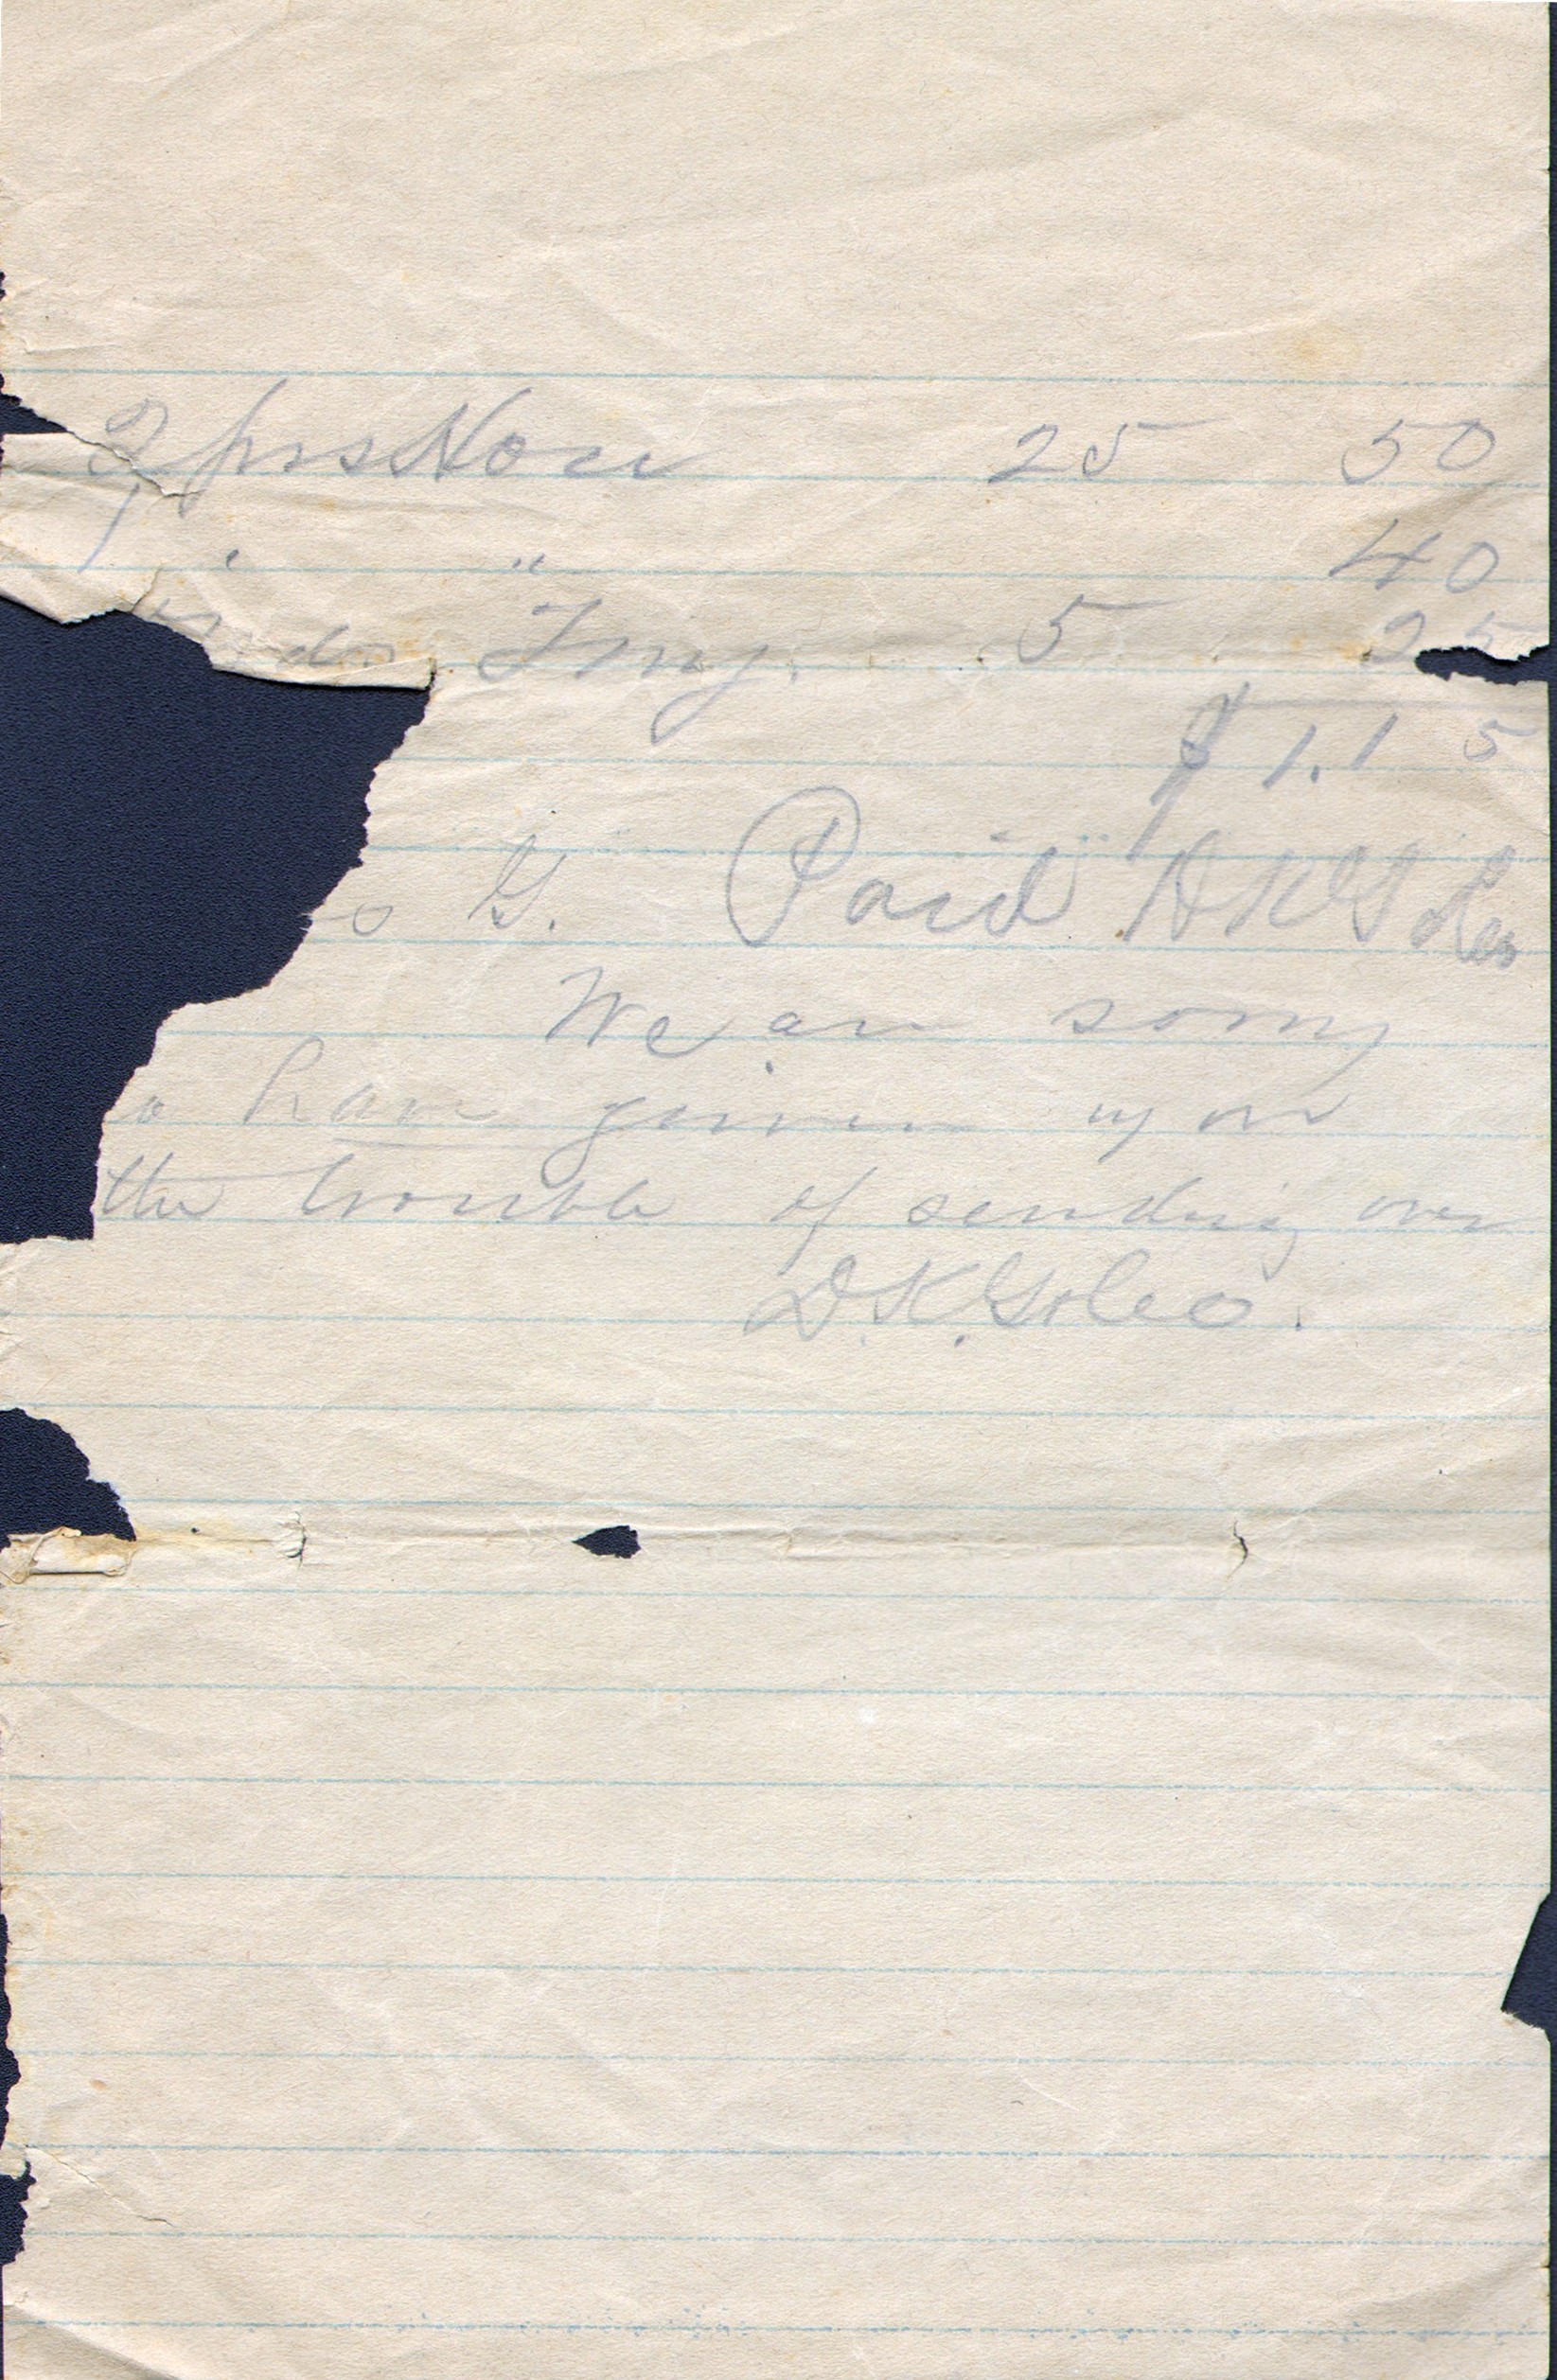 2 prs Hose 25 50
1 " " 40
Trmg. 5 25
$1.15
G. Paid D K G & Co
We are sorry
to have given you
the trouble of sending over
D.K.G & Co.